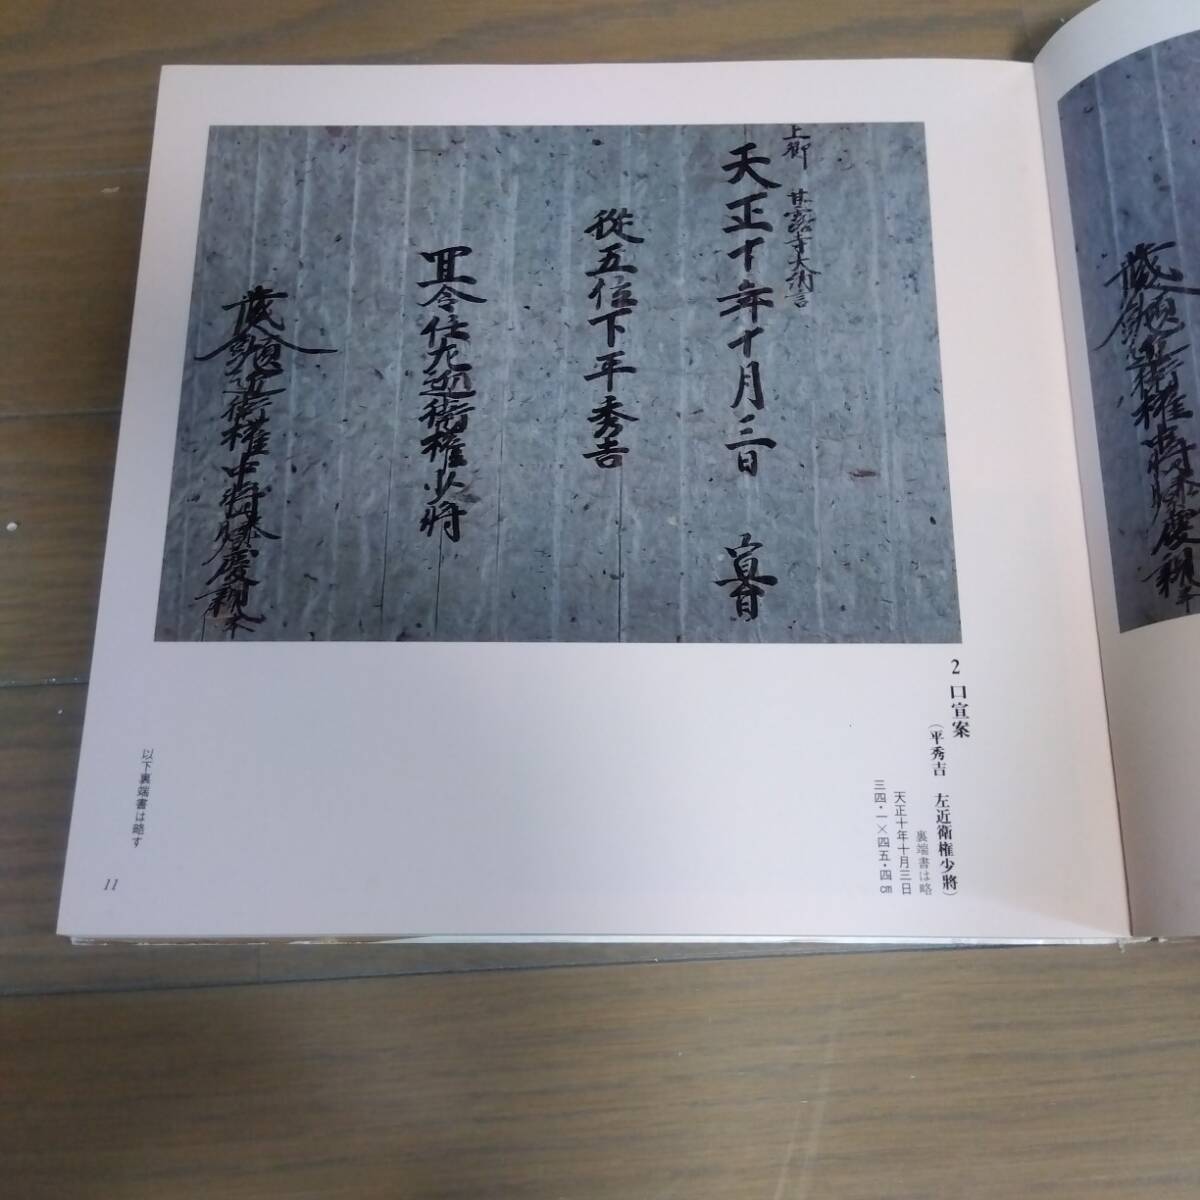 上卿 甘露寺大納言
天正十年十月三日 宣旨
從五位下平秀吉
宜令任左近衛權少將
蔵人頭左近衛權中將藤慶親奉
2 口宣案
（平秀吉 左近衛権少將）
裏端書は略
天正十年十月三日
三四・一×四五・四㎝
以下裏端書は略す
11